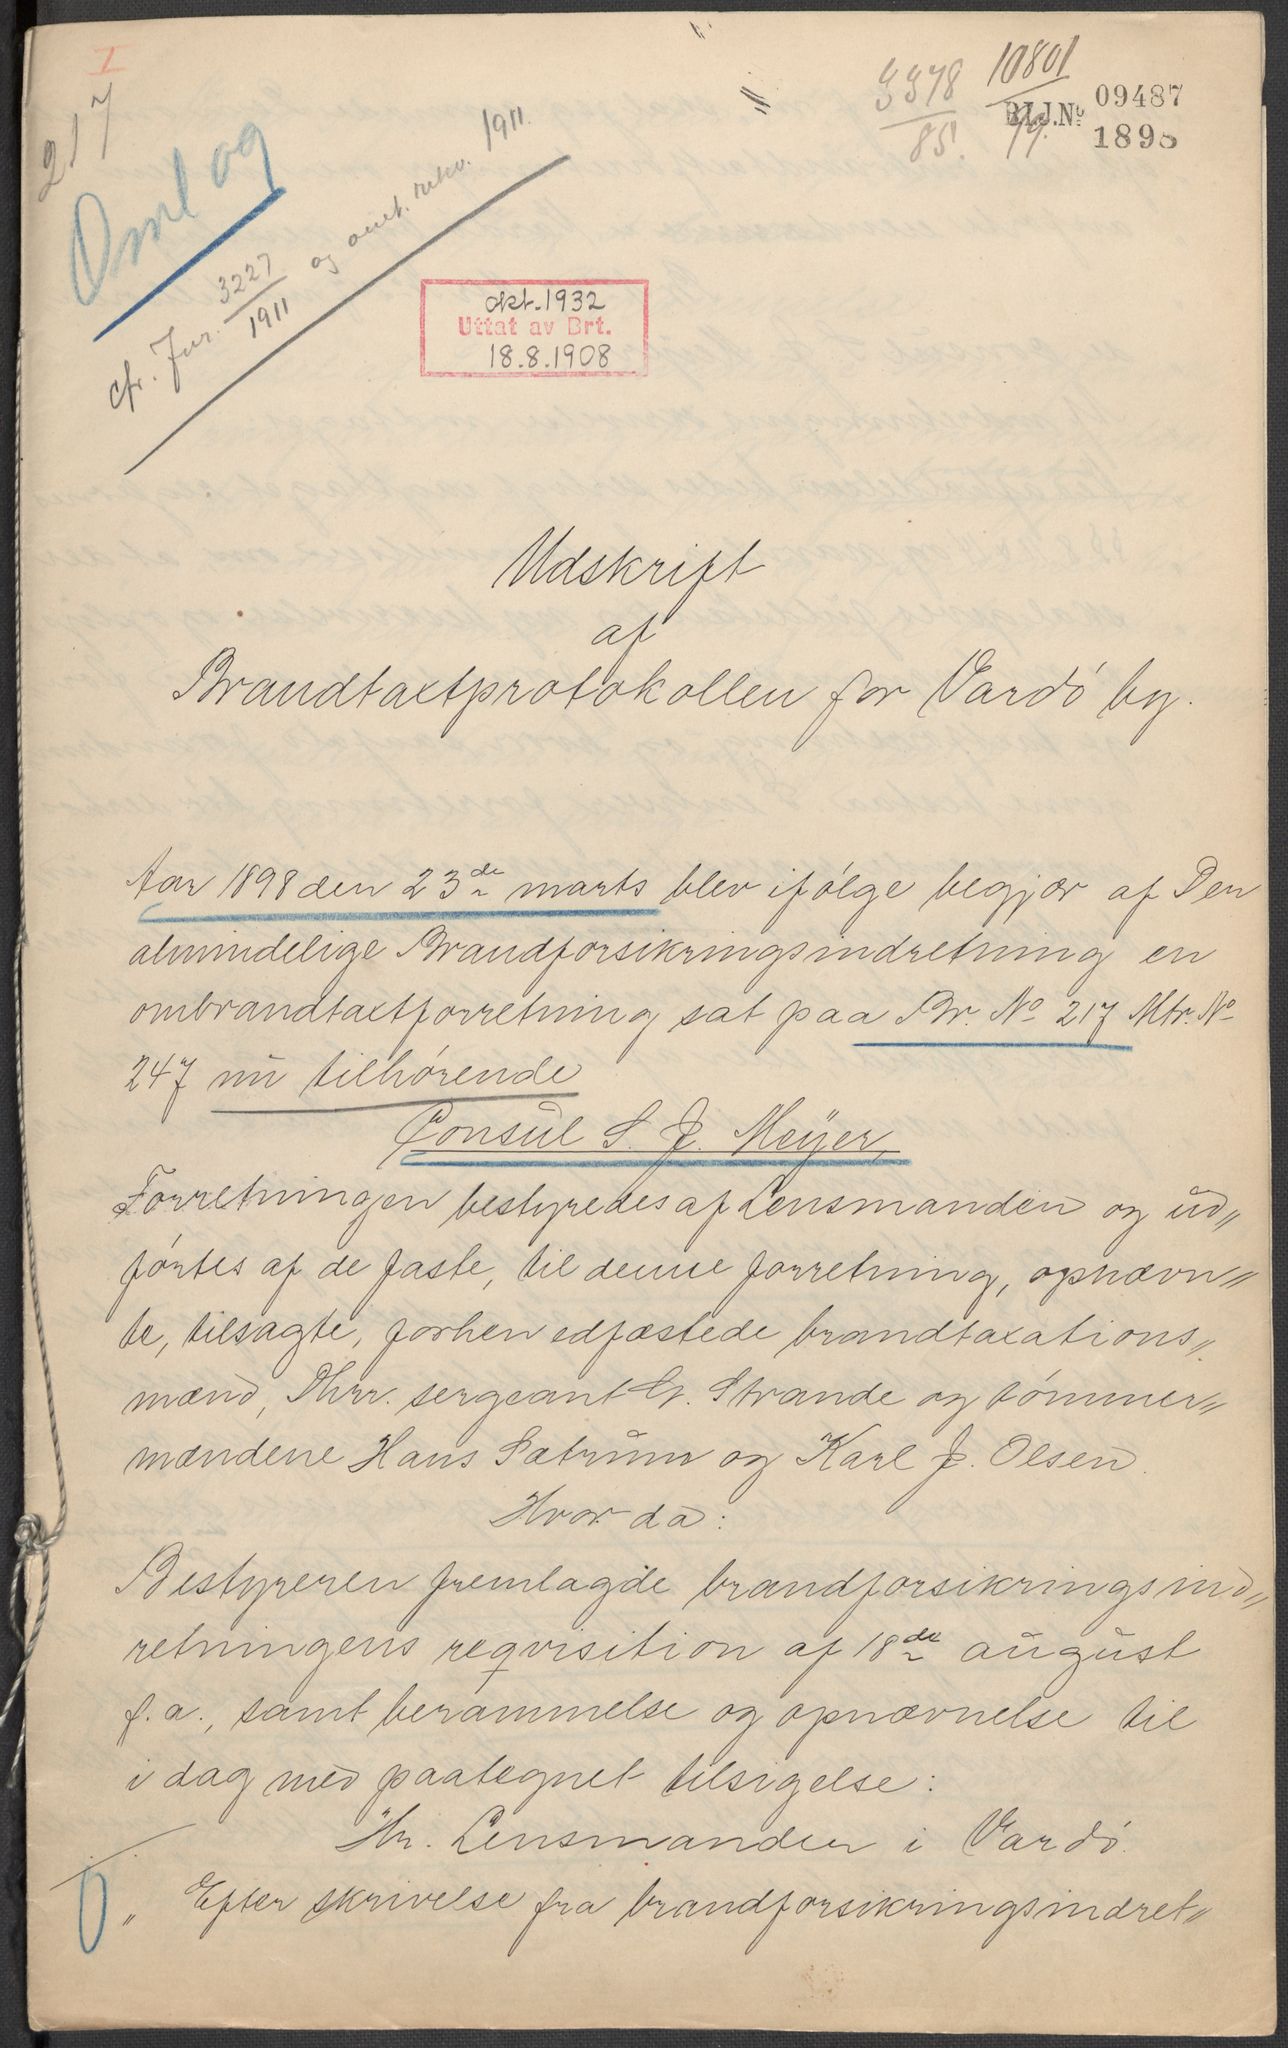 I
217
Oml og
cfr. Jnr. 3227/1911 og omt. rekv. 1911.
3378/85.
10801/99.
BI.J.No. 09487
1898
okt. 1932
Uttat av Brt.
18.8.1908
Udskrift
af
Brandtaxtprotokollen for Vardö by.
Aar 1898 den 23de marts blev ifølge begjær af Den
almindelige Brandforsikringsindretning en
ombrandtaxtforretning sat paa Br. No 217 Mtr. No
247 nu tilhørende
Consul S. J. Meyer,
Forretningen bestyredes af Lensmanden og ud„
førtes af de faste, til denne forretning, opnævn„
te, tilsagte, forhen edfæstede brandtaxations„
mænd, Dhrr. sergeant G. Strande og tömmer„
mændene Hans Sætrum og Karl J. Olsen.
Hvor da:
Bestyreren fremlagde brandforsikringsind„
retningens reqvisition af 18de august
f.a., samt berammelse og opnævnelse til
i dag med paategnet tilsigelse:
Hr. Lensmanden i Vardö.
„ Efter skrivelse fra brandforsikringsindret„